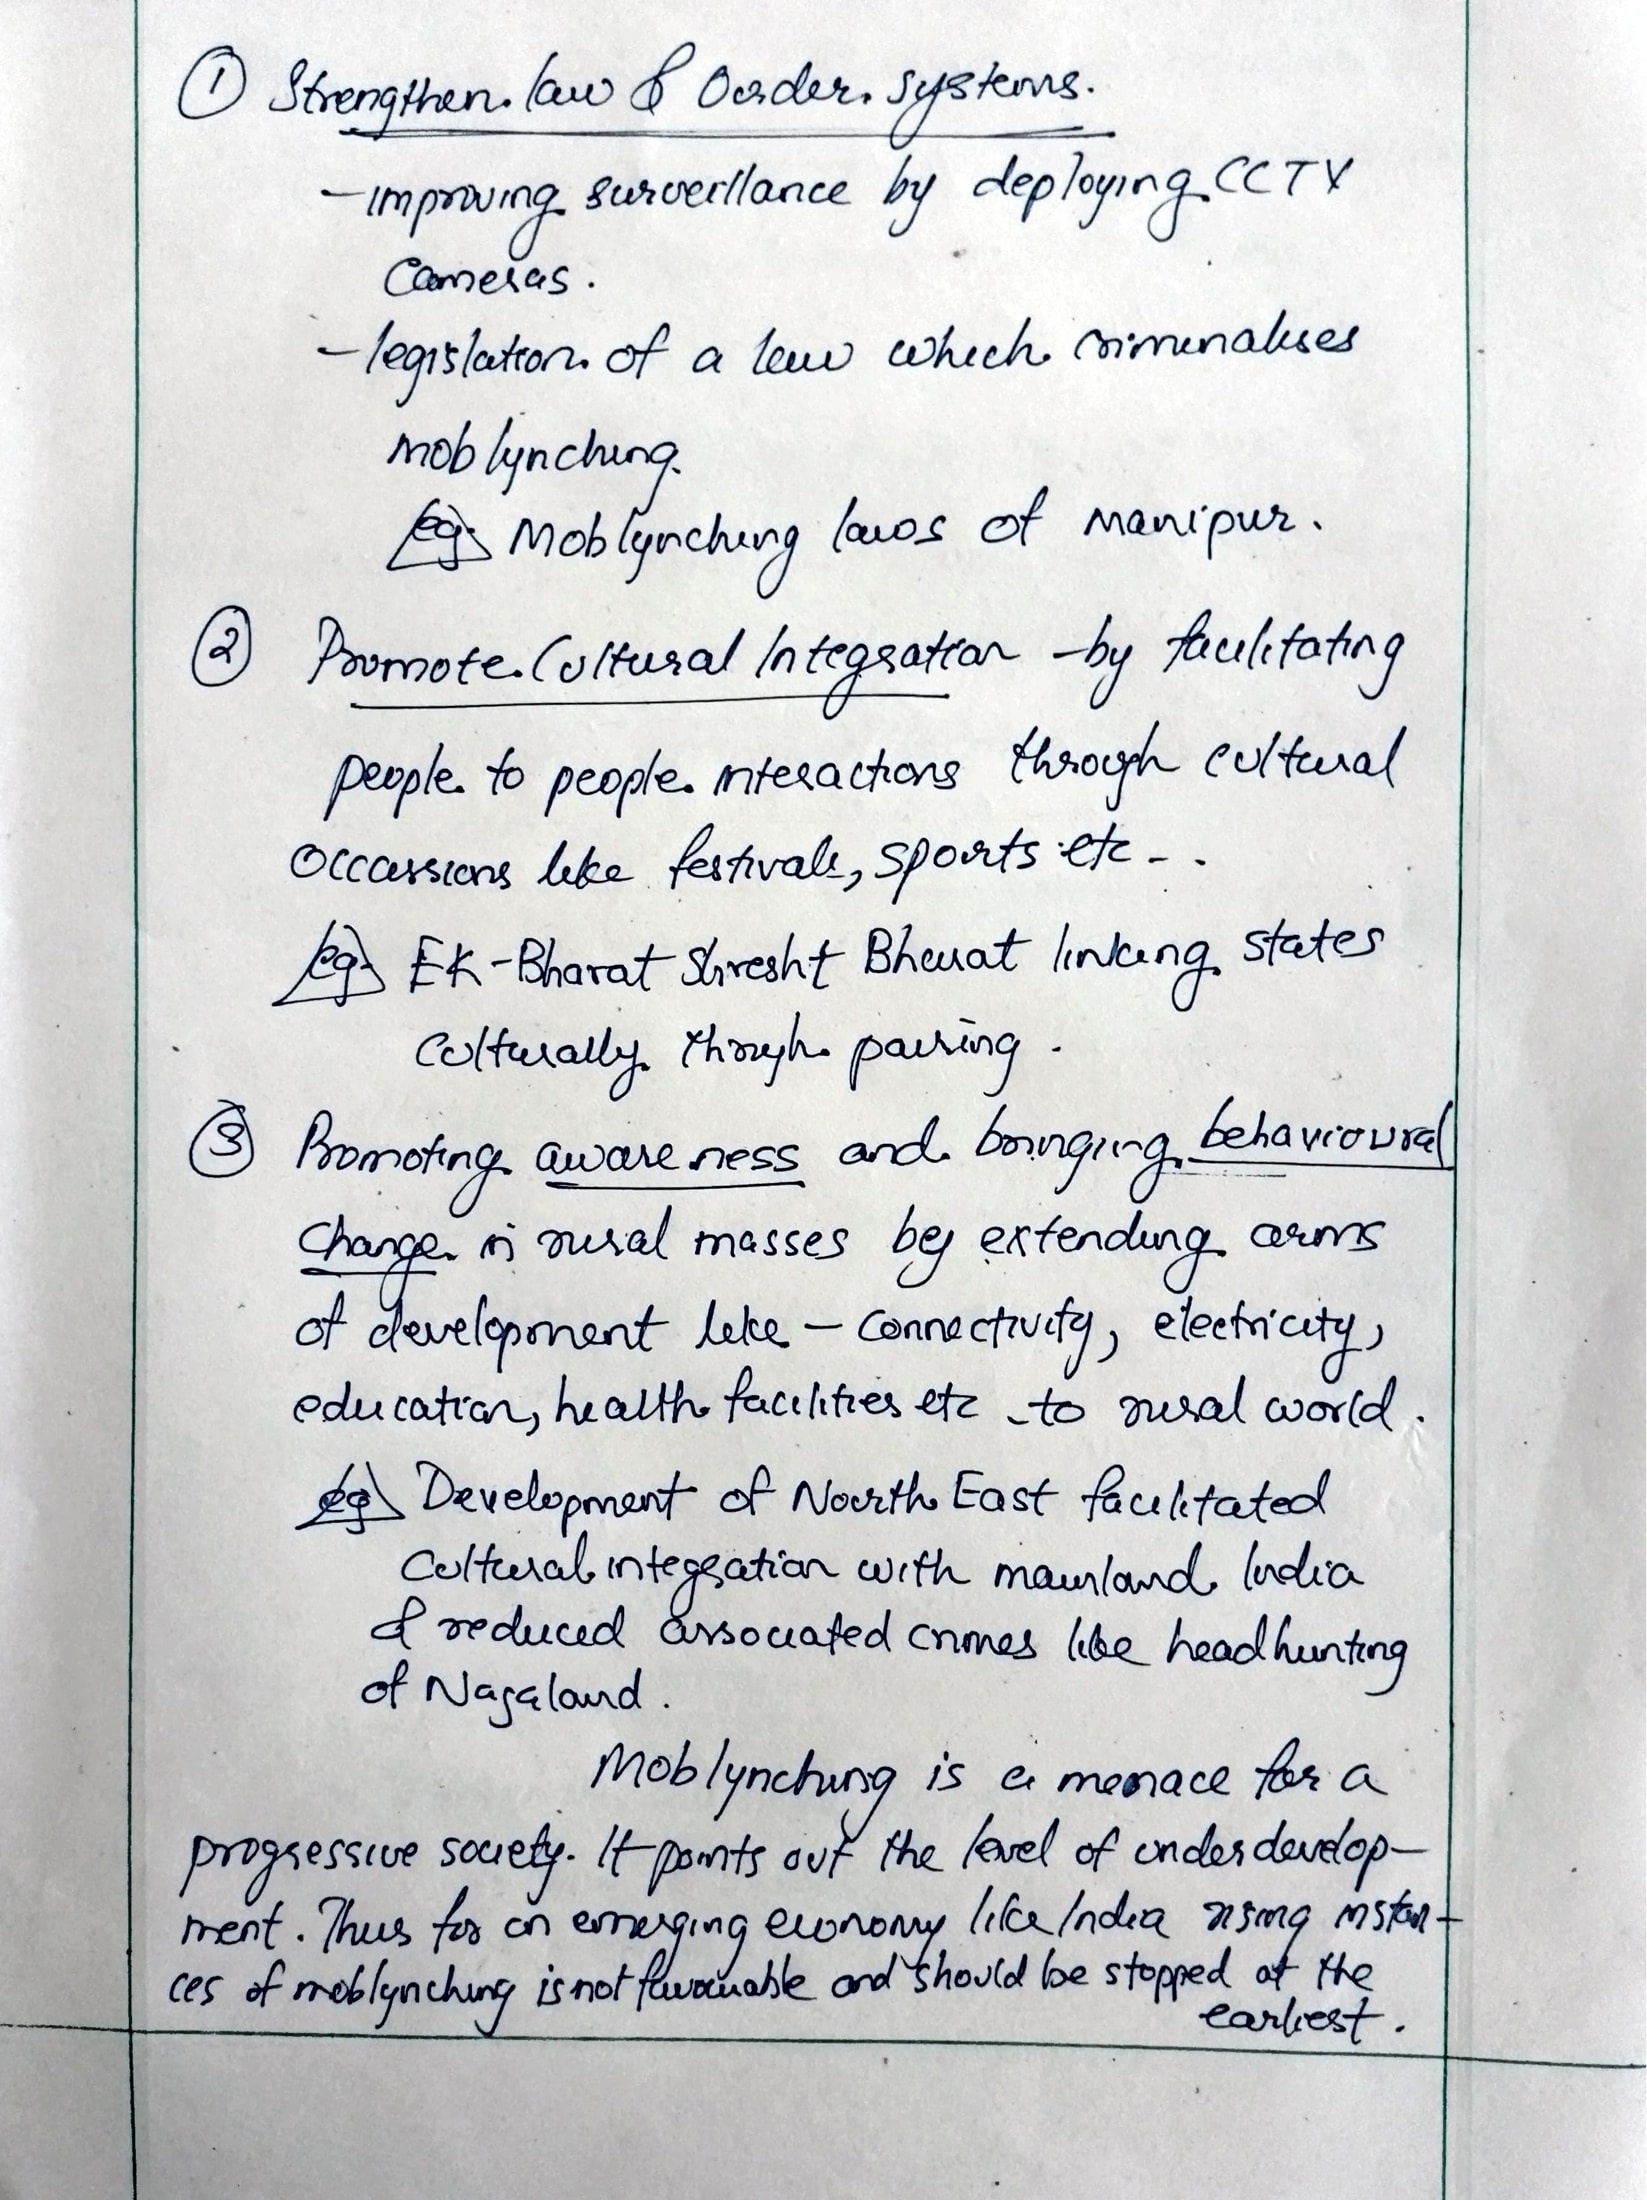 ① Strengthen law & Order systems.
- improving surveillance by deploying CCTV
Cameras.
- legislation of a law which criminalises
mob lynching.
eg. Mob lynching laws of Manipur.
② Promote Cultural Integration - by facilitating
people to people interactions through cultural
occassions like festivals, sports etc - .
eg EK-Bharat Shresht Bharat linking states
culturally through pairing.
③ Promoting awareness and bringing behavioural
change in rural masses by extending arms
of development like - connectivity, electricity,
education, health facilities etc - to rural world.
eg Development of North East facilitated
cultural integration with mainland India
& reduced associated crimes like head hunting
of Nagaland.
Mob lynching is a menace for a
progressive society. It points out the level of under develop-
ment. Thus for an emerging economy like India rising instan-
ces of mob lynching is not favourable and should be stopped at the
earliest.